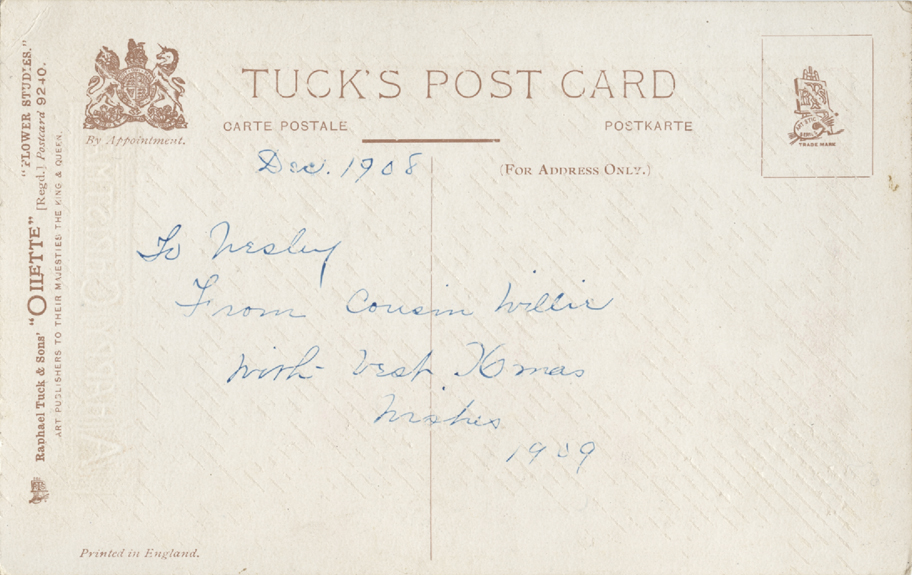 TUCK'S POST CARD
CARTE POSTALE
POSTKARTE
(FOR ADDRESS ONLY.)
By Appointment.
TRADE MARK
Dec. 1908
To Wesley
From Cousin Willie
with best Xmas
Wishes
1909
Raphael Tuck & Sons' "OILETTE" [Regd.] Postcard 9240.
"FLOWER STUDIES."
ART PUBLISHERS TO THEIR MAJESTIES THE KING & QUEEN.
Printed in England.